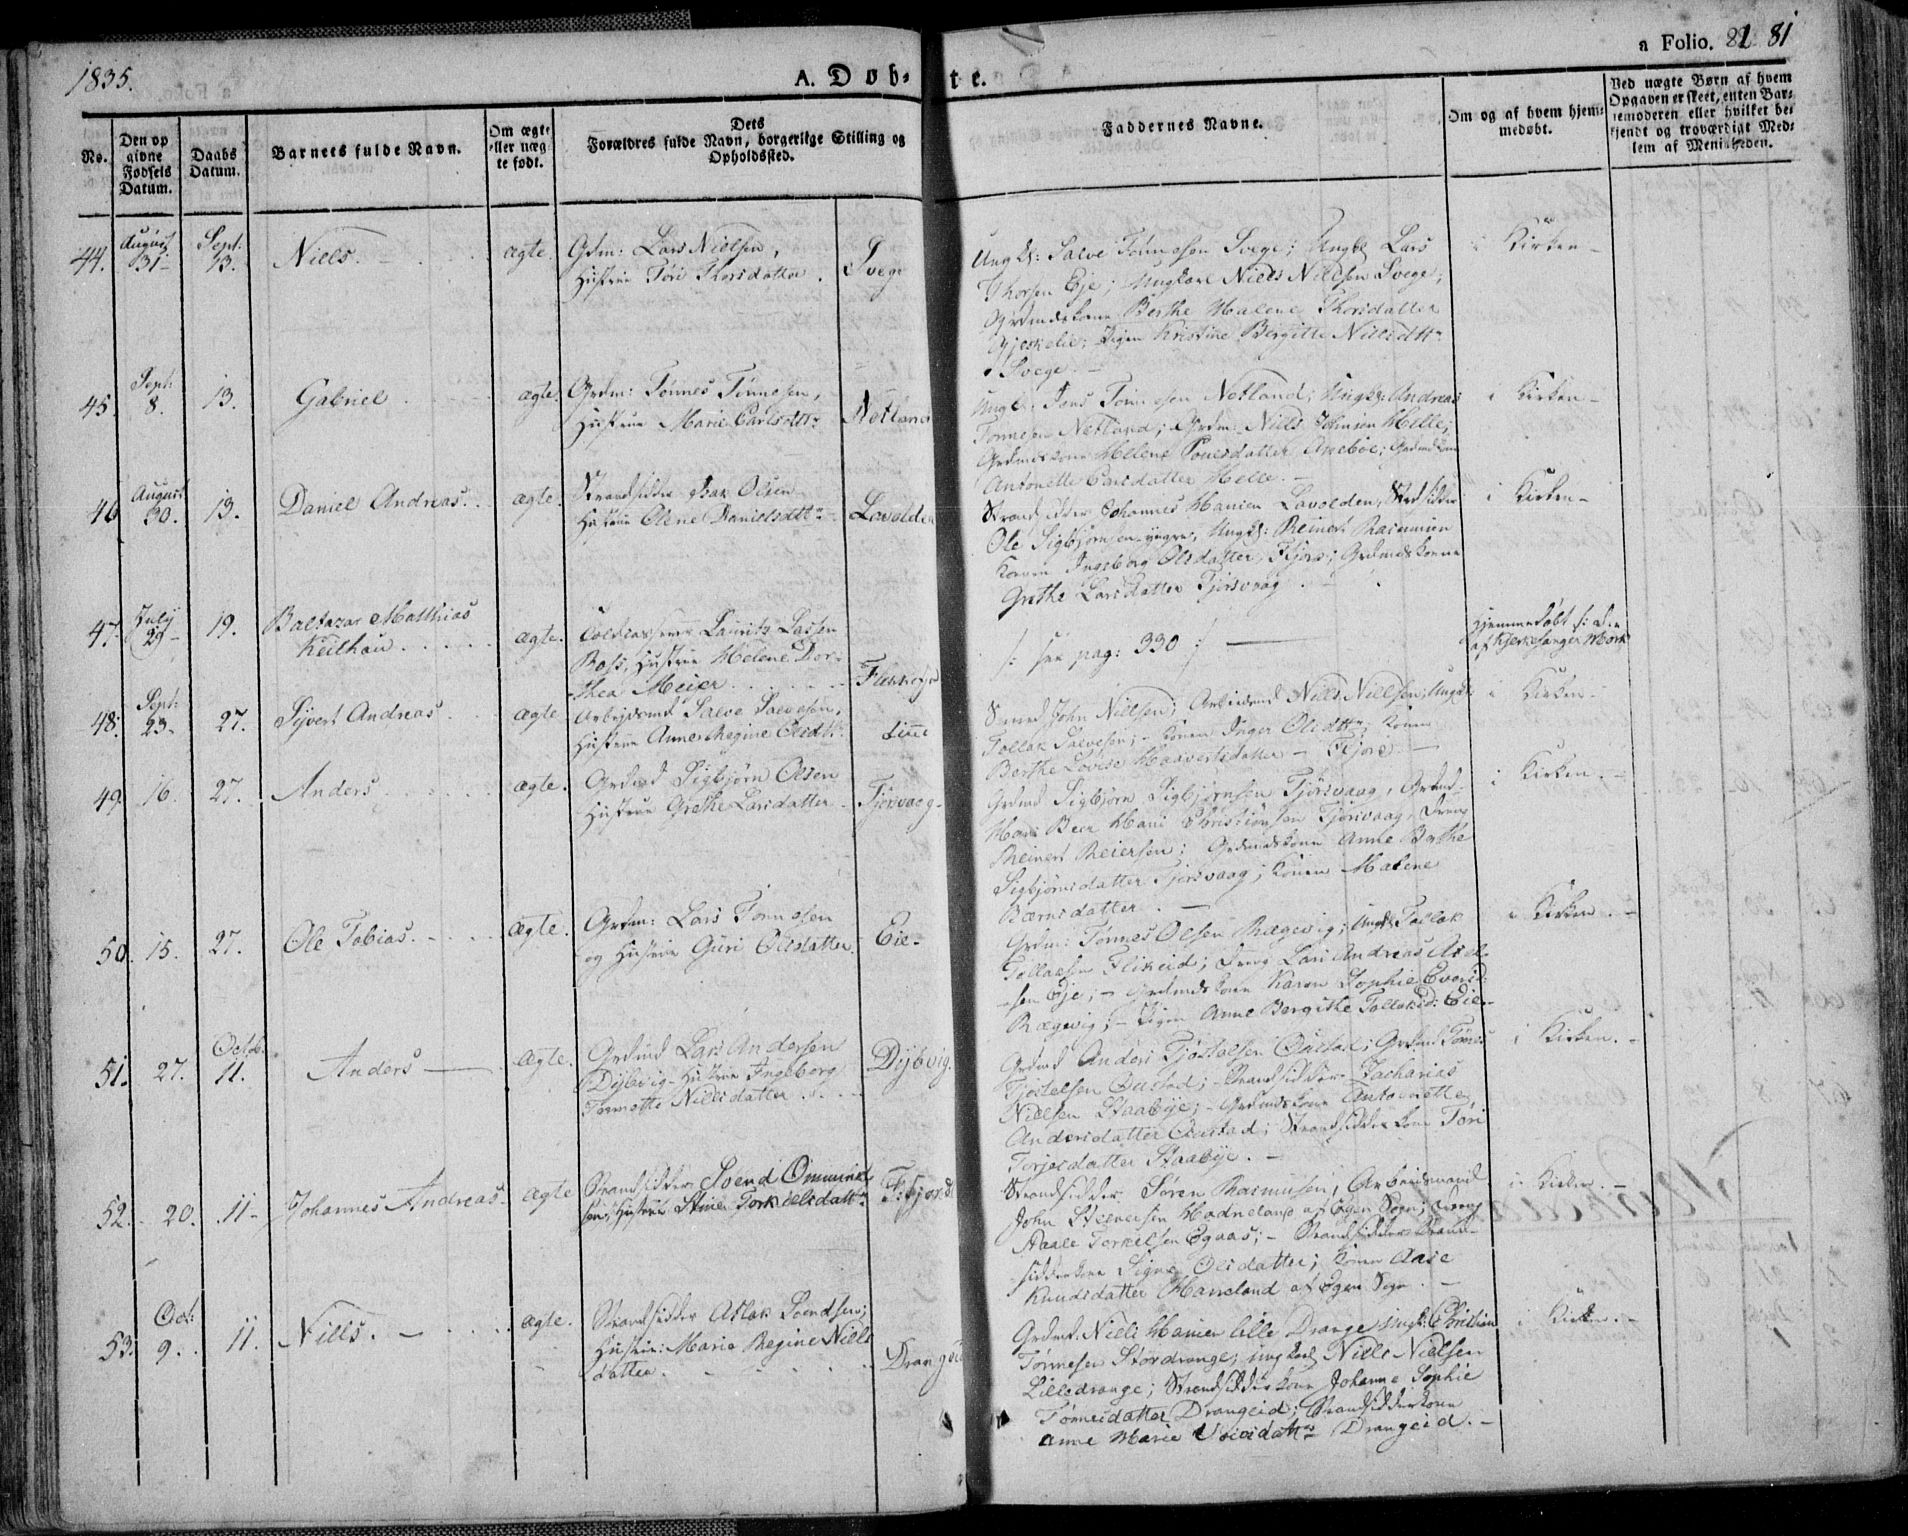 1835.
A. Døb-
te.
a Folio. 81 81
No.
Den op
givne
Fødsels
Datum.
Daabs
Datum.
Barnets fulde Navn.
Om ægte
eller uæg
te født.
Dets
Forældres fulde Navn, borgerlige Stilling og
Opholdssted.
Faddernes Navne.
Om og af hvem hjem-
medøbt.
Ved uægte Børn af hvem
Opgaven er skeet, enten Bar-
nemoderen eller hvilket be-
kjendt og troværdigt Med-
lem af Menigheden.
44. August 31- Sept. 13. Niels. ægte. Grdm: Lars Nielsen,
Hustrue Töri Thorsdatter. Svege
Ungk: Salve Tönnesen Svege; Ungk Lars
Thorsen Eje; Ungkarl Niels Nielsen Svege;
Grdmdskone Berthe Malene Thorsdatter
Pigen Kristine Bergitte Nielsdttr
Svege. -
i Kirken -
45. Sept: 8. 13. Gabriel ægte. Grdm: Tønnes Tønnesen,
Hustrue Marie Carlsdttr Netland
Ungk. Jens Tønnesen Netland; Ungk: Andreas
Tønnesen Netland; Grdm: Niels Helle;
Grdmdskone Helene
Antonette Carlsdatter Helle. -
i Kirken -
46 August 30. 13. Daniel Andreas. ægte. Strandsidder Isak Olsen
Hustrue Olene Danielsdttr Lavolden
Strandsidder Johannes Hansen Lavolden, Strdsidder
Ole Sigbjörnsen yngre, Ungk: Reinert Rasmusen
Konen Ingeborg Olsdatter, Grdmdskone
Grethe Larsdatter Tjörsvaag
i Kirken -
47. July 29- 19. Baltazar Matthias
Keilhau ægte. Lauritz Lassen
Hustrue Helene Dor-
thea Meier Flekkefjord
/: see pag: 330 :/
Hjemmedøbt
af Kirkesanger Mørk
48. Sept: 23- 27. Sÿvert Andreas ægte Arbeidsmd Salve Salvesen,
Hustrue Anne Regine Olsdttr
Smed John Nielsen; Arbeidsmd Niels Nielsen, Ungk
Tollak Salvesen; - Konen Inger Olsdttr; Konen
Berthe Lovise
i Kirken -
49. 16. 27. Anders ægte. Grdmd Sigbjørn Olsen
Hustrue Grethe Larsdatter Tjörsvaag-
Grdmd Sigbjørn Sigbjørnsen Tjörsvaag, Grdmd-
Hans Christiansen Tjörsvaag, Dreng
Reinert Reiersen; Grdmdskone Anne Berthe
Sigbjörnsdatter Tjörsvaag; Konen Malene
i Kirken. -
50. 15. 27. Ole Tobias. ægte. Grdm: Lars Tønnesen
og Hustrue Guri Olsdatter Eie-
Grdm: Tønnes Olsen Rægevig; Ungk Tollak
Tollaksen Flikeid; Dreng Lars Andreas
Eje; - Grdmdskone Karen Sophie
Rægevig; - Pigen Anne Bergithe Tollaksd: Eie-
i Kirken. -
51. 27. Octob. 11. Anders ægte. Grdmd Lars Andersen
Dÿbvig Hustrue Ingeborg
Tonnette Nielsdatter Dÿbvig.
Grdmd Anders Tjøstelsen Østad; Grdmd Tönnes
Tjøstelsen Østad; - Strandsidder Zacharias
Nielsen Staaböje; - Grdmdskone Antonette
Andersdatter Østad; Strandsidderkone Töri
Torjesdatter Staaböje. -
i Kirken. -
52. 20. 11- Johannes Andreas- ægte Strandsidder Svend Ommund
sen, Hustrue Stine Torkielsdattr
Strandsidder Sören Rasmusen; Arbeidsmand
John Madneland af Egen Sogn; Dreng
Aale Torkelsen Egaas; - Strandsidder
sidderkone Signe Olsdatter; Konen Aase
Knudsdatter Haneland af Egen Sogn. -
i Kirken. -
53. Oct: 9. 11. Niels. - ægte. Strandsidder Aslak Svendsen;
Hustrue: Marie Regine Niels
datter. Drangeid
Grdmd. Niels Hansen lille Drange Ungk: Christian
Tönnesen Stordrange; Ungkarl Niels Nielsen
Lilledrange; Strandsidderkone Johanne Sophie
Tönnesdatter Drangeid; Strandsidderkone
Anne Marie Drangeid. -
i Kirken. -